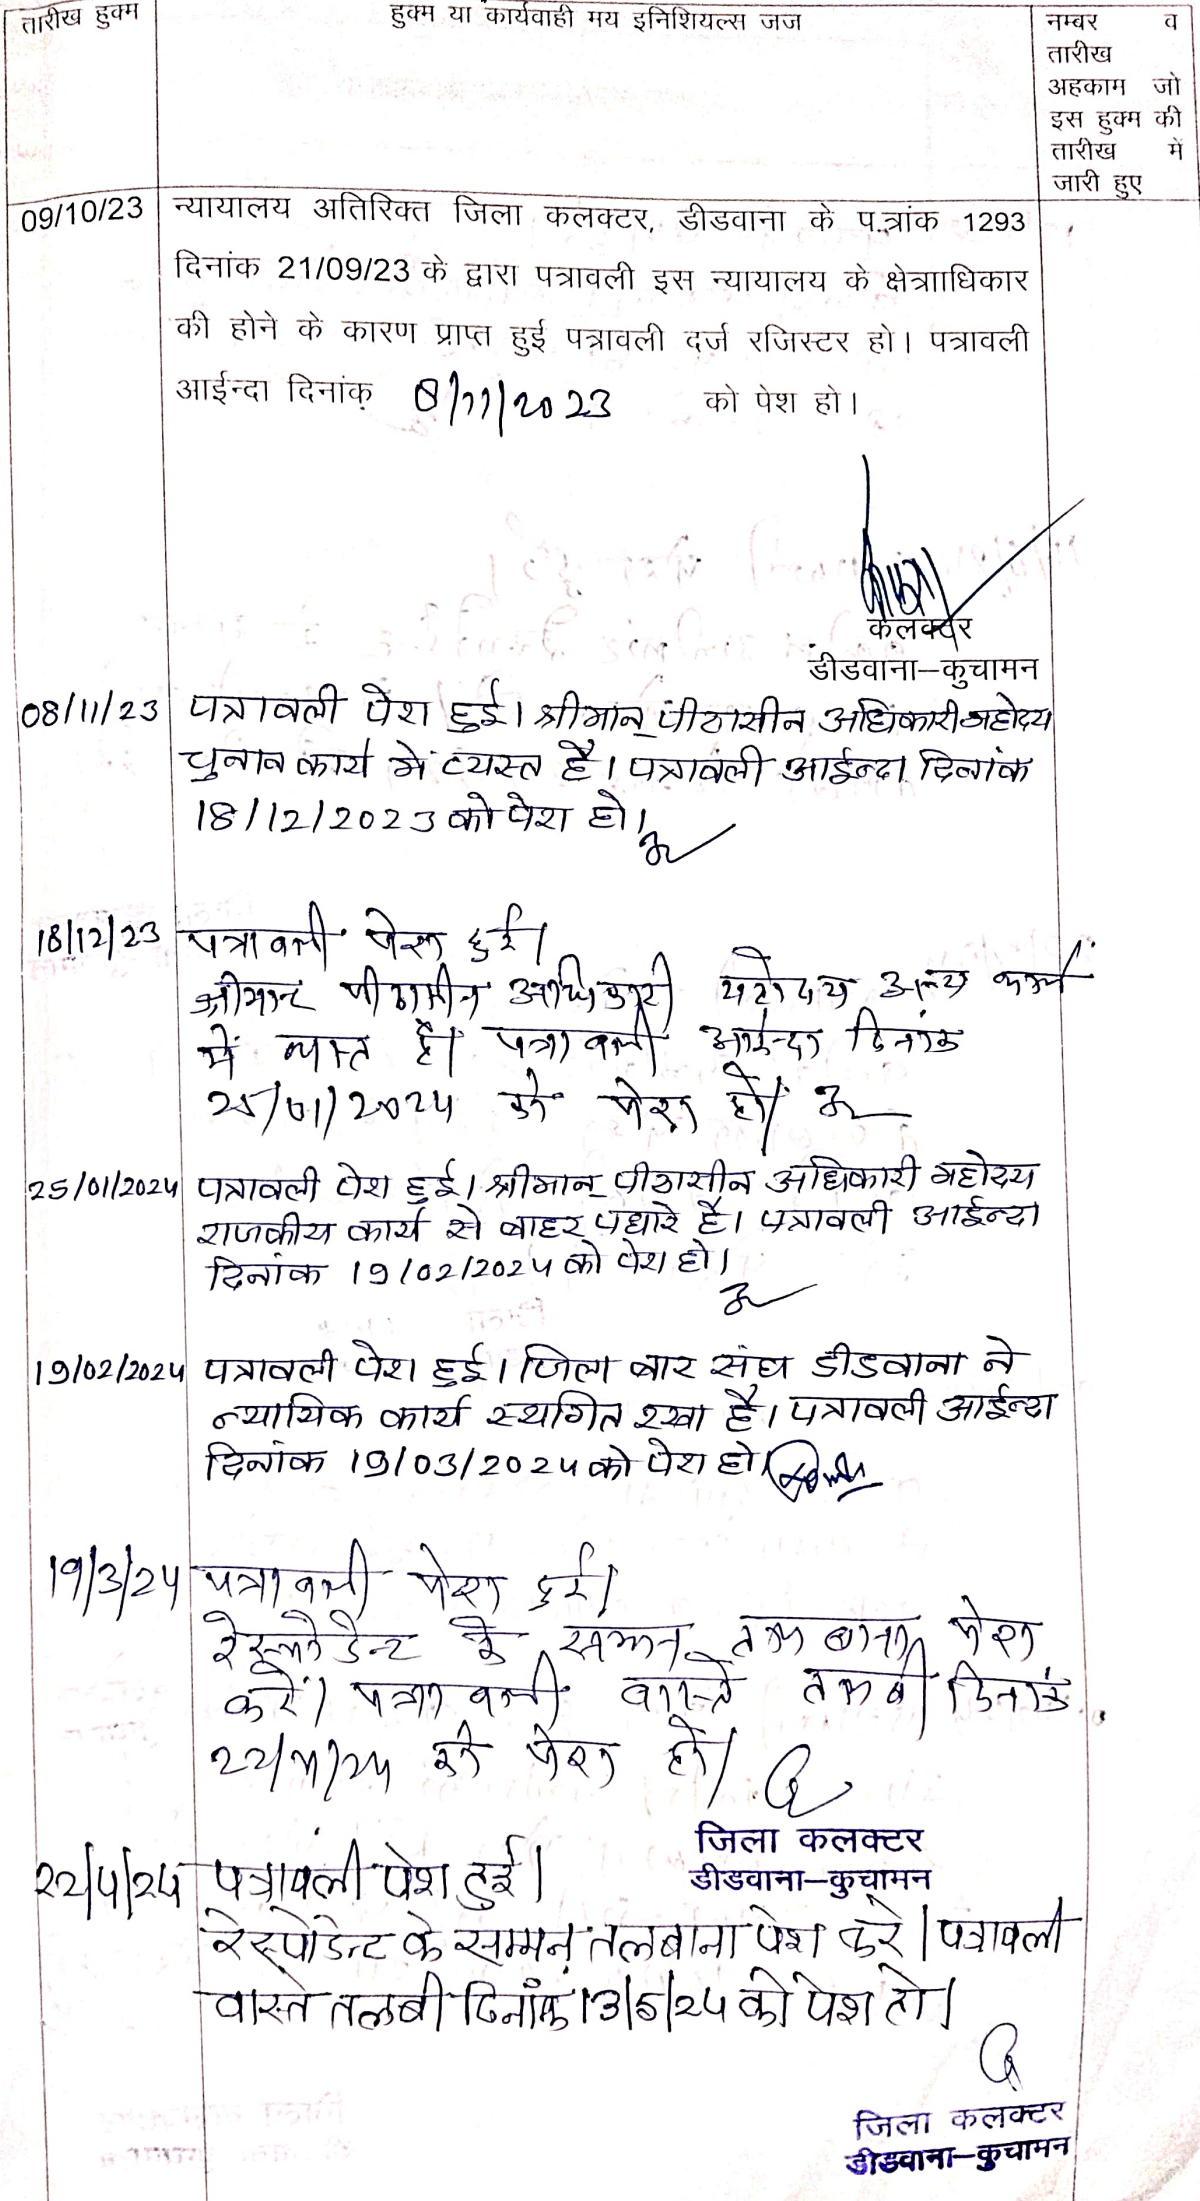 तारीख हुक्म
हुक्म या कार्यवाही मय इनिशियल्स जज
नम्बर व
तारीख
अहकाम जो
इस हुक्म की
तारीख में
जारी हुए
09/10/23
न्यायालय अतिरिक्त जिला कलक्टर, डीडवाना के प.त्रांक 1293
दिनांक 21/09/23 के द्वारा पत्रावली इस न्यायालय के क्षेत्रााधिकार
की होने के कारण प्राप्त हुई पत्रावली दर्ज रजिस्टर हो। पत्रावली
आईन्दा दिनांक 8/11/2023 को पेश हो।
कलक्टर
डीडवाना–कुचामन
08/11/23 पत्रावली पेश हुई। श्रीमान् पीठासीन अधिकारी महोदय
चुनाव कार्य में व्यस्त है। पत्रावली आईन्दा दिनांक
18/12/2023 को पेश हो।
18/12/23 पत्रावली पेश हुई।
श्रीमान पीठासीन अधिकारी महोदय अन्य कार्य
में व्यस्त है। पत्रावली आईन्दा दिनांक
25/01/2024 को पेश हो।
25/01/2024 पत्रावली पेश हुई। श्रीमान् पीठासीन अधिकारी महोदय
राजकीय कार्य से बाहर पधारे है। पत्रावली आईन्दा
दिनांक 19/02/2024 को पेश हो।
19/02/2024 पत्रावली पेश हुई। जिला बार संघ डीडवाना ने
न्यायिक कार्य स्थगित रखा है। पत्रावली आईन्दा
दिनांक 19/03/2024 को पेश हो।
19/3/24 पत्रावली पेश हुई।
रेस्पोडेन्ट के सम्मन तलबाना पेश
करें। पत्रावली वास्ते तलबी दिनांक
22/4/24 को पेश हो।
जिला कलक्टर
डीडवाना–कुचामन
22/4/24 पत्रावली पेश हुई।
रेस्पोडेन्ट के सम्मन तलबाना पेश करे। पत्रावली
वास्ते तलबी दिनांक 13/5/24 को पेश हो।
जिला कलक्टर
डीडवाना–कुचामन